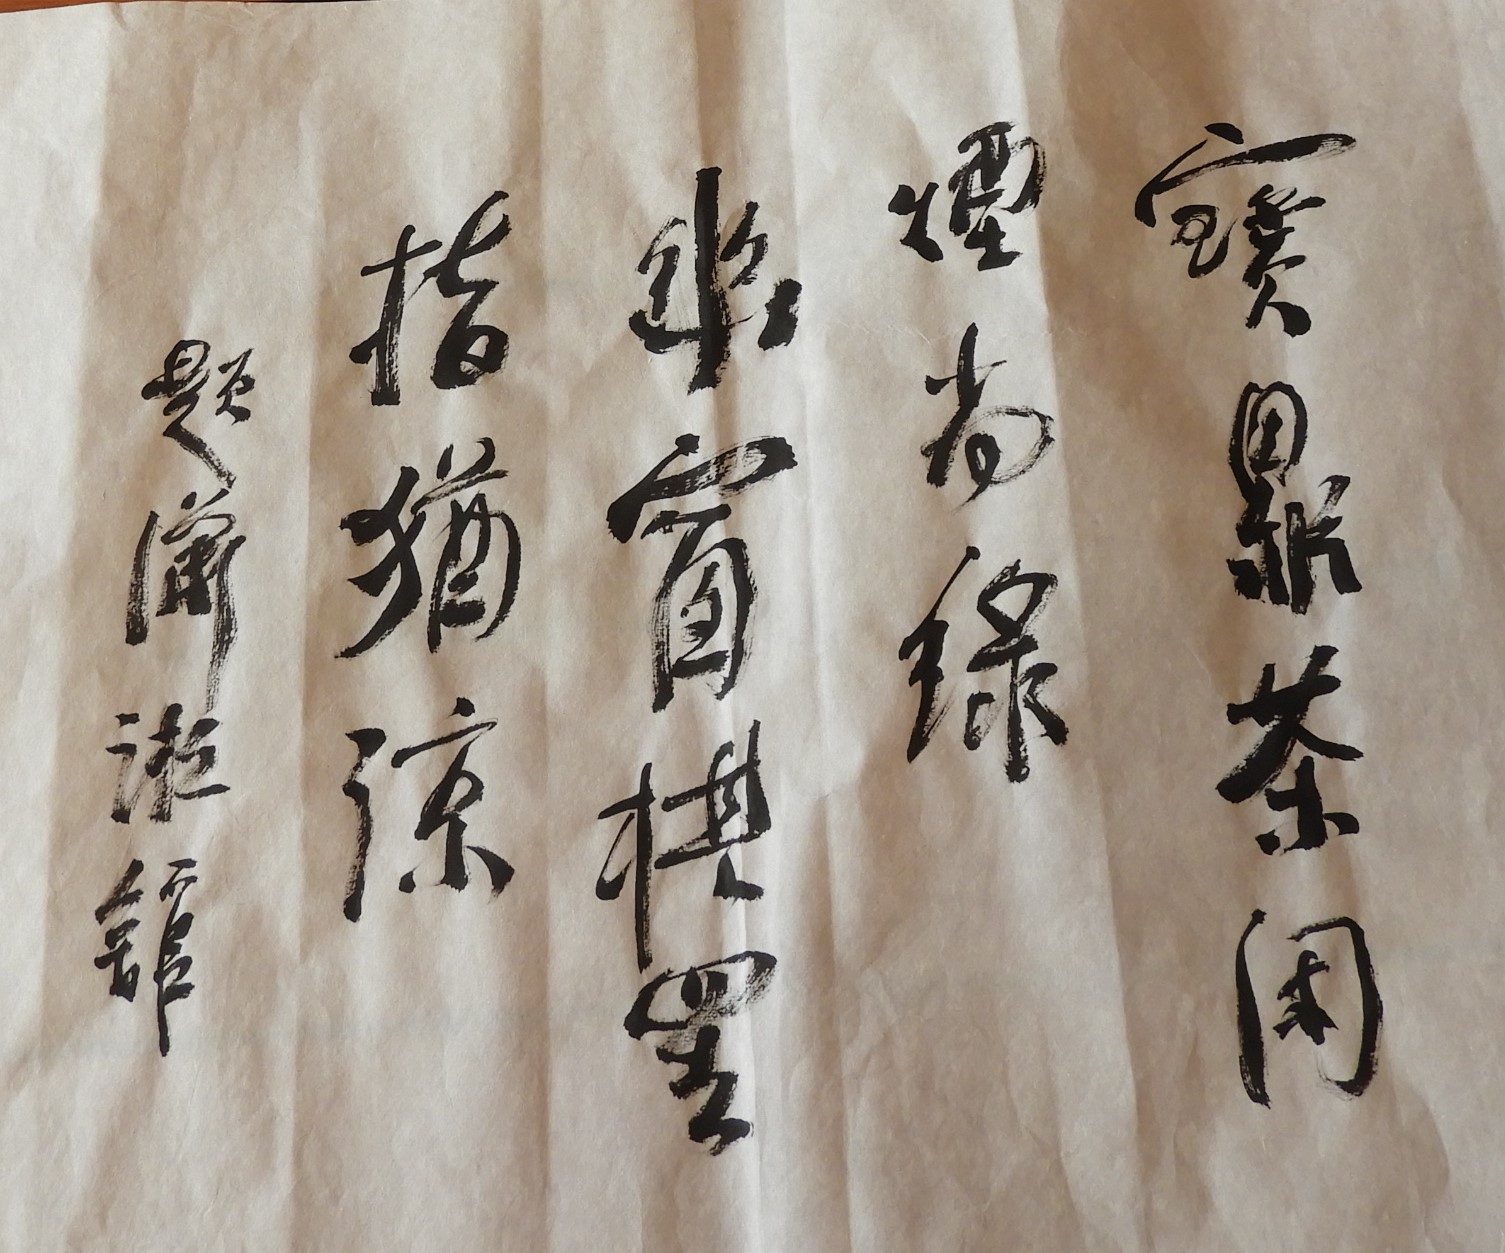 寶鼎茶閑
煙尚綠
幽窗棋罢
指猶涼
題瀟湘館